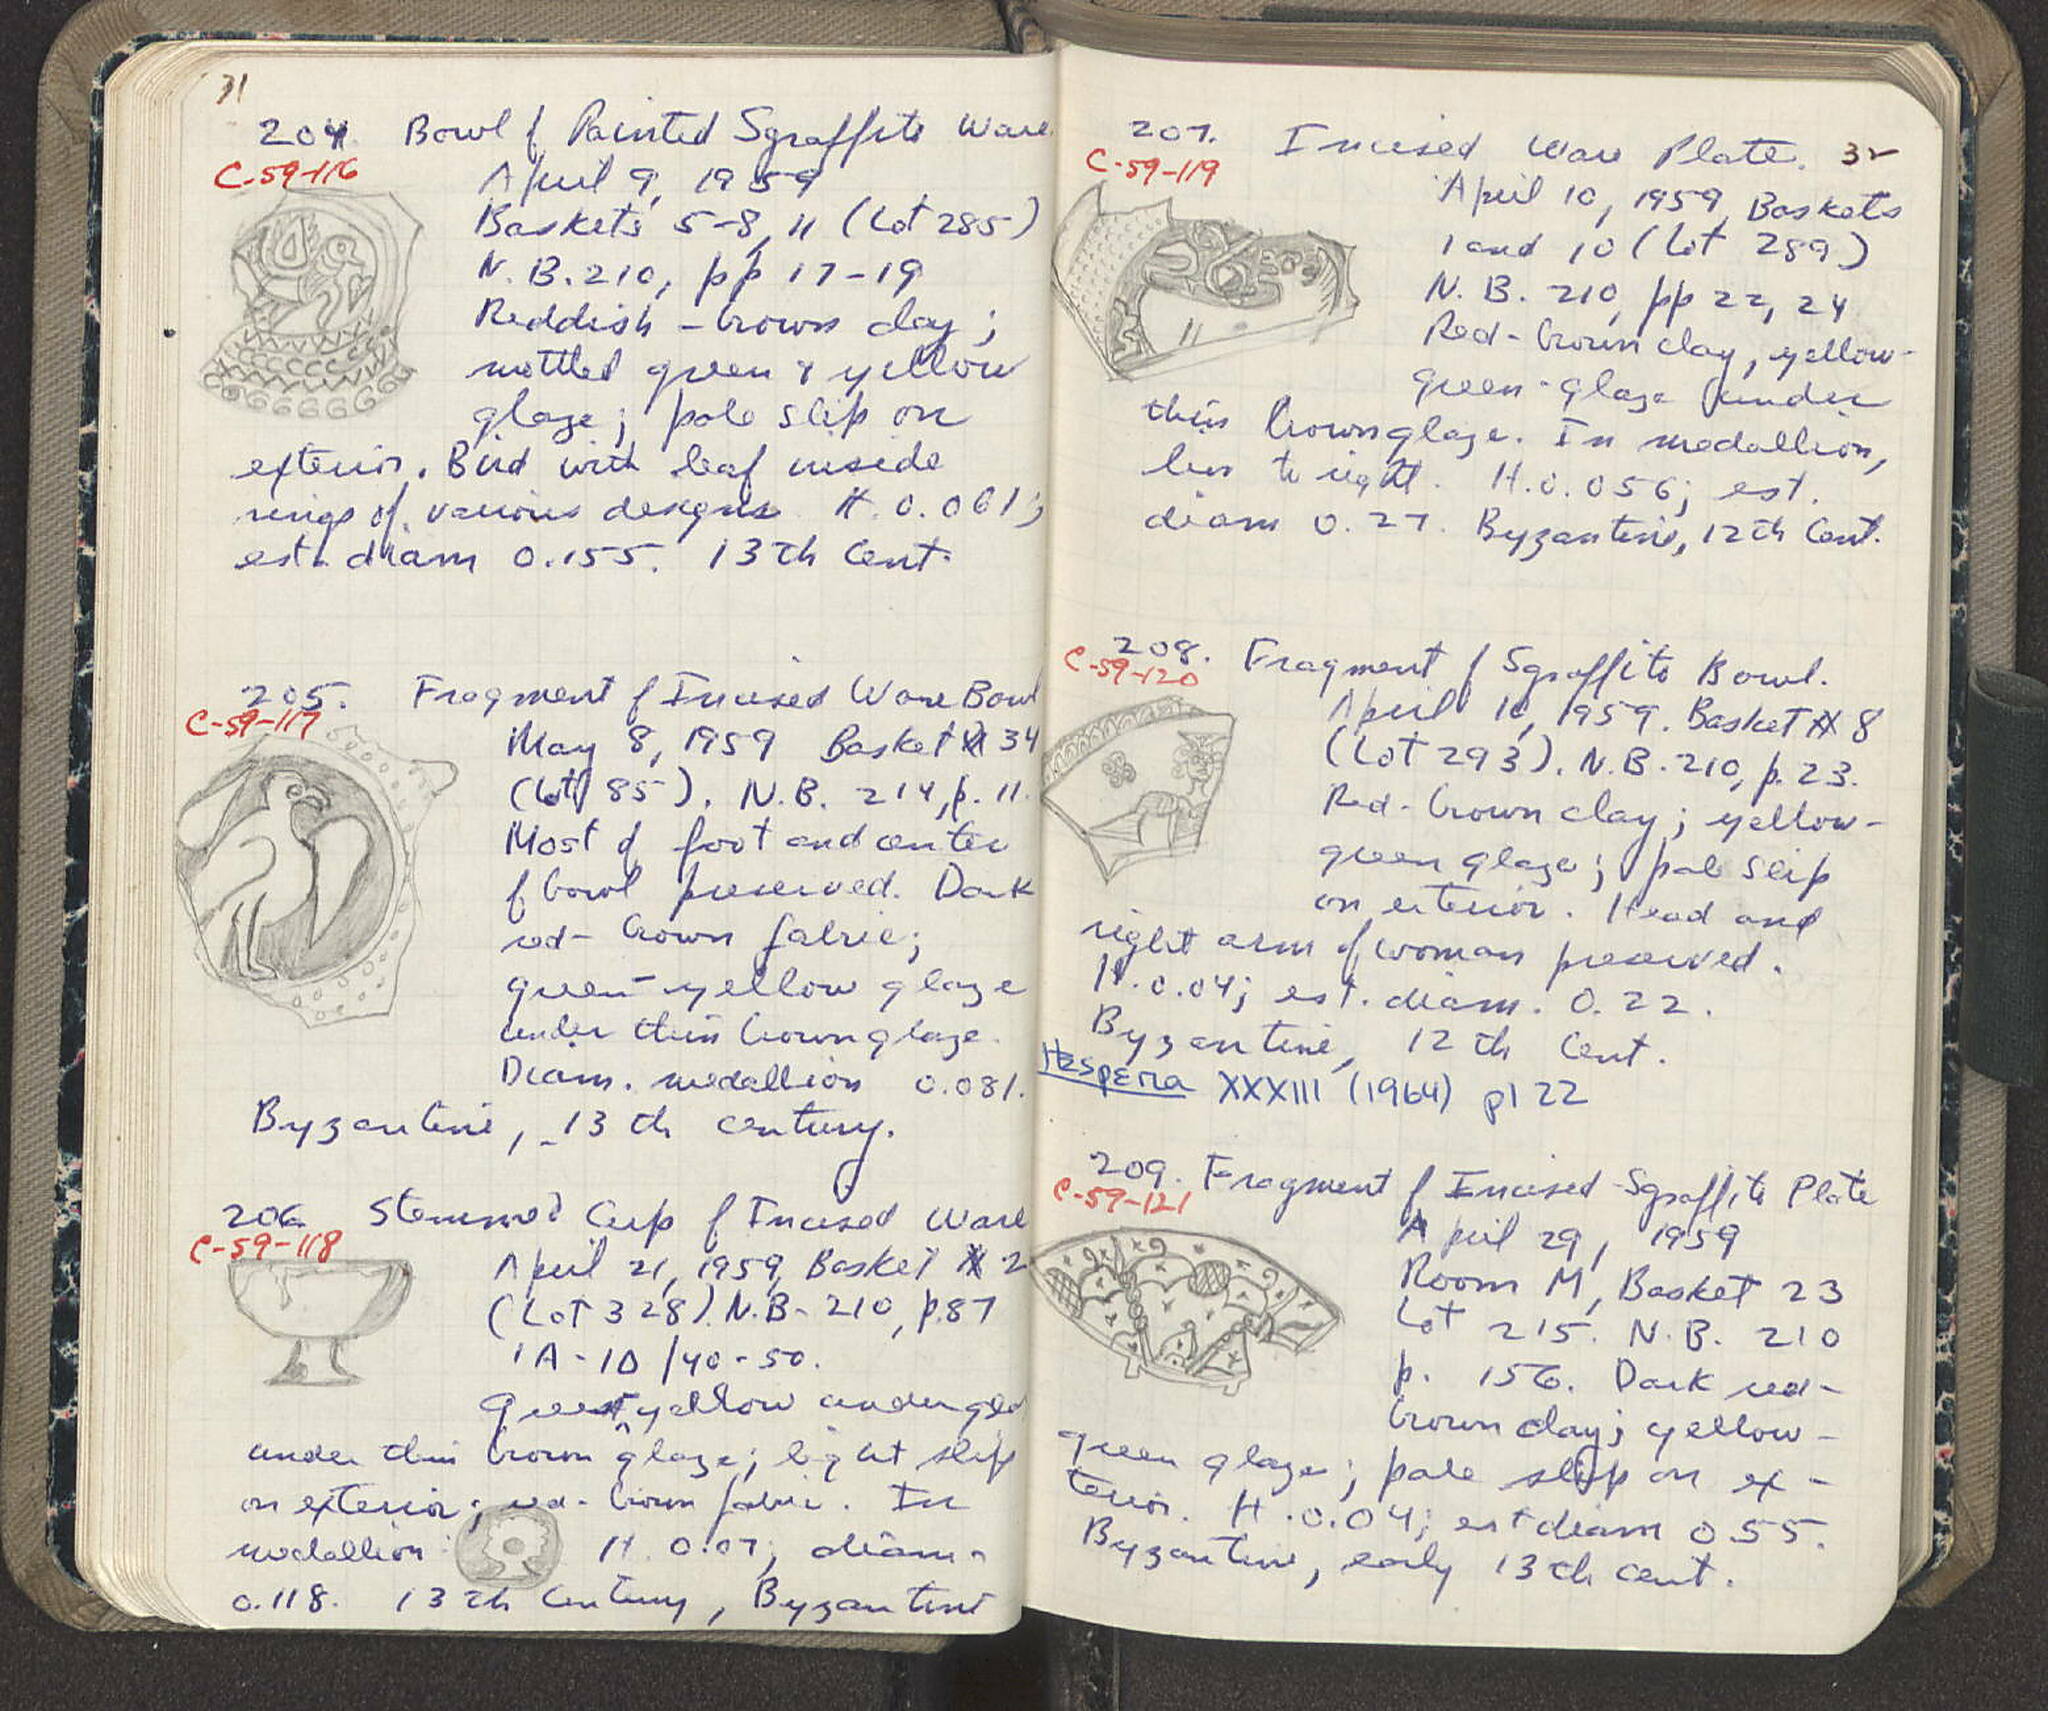 31
204. Bowl of Painted Sgraffito Ware
C-59-116
April 9, 1959
Baskets 5-8, 11 (Lot 285)
N.B. 210, pp 17-19
Reddish-brown clay;
mottled green & yellow
glaze; pale slip on
exterior. Bird with leaf inside
rings of various designs. H. 0.061;
est. diam 0.155. 13th Cent.
205. Fragment of Incised Ware Bowl
C-59-117
May 8, 1959 Basket # 34
(Lot 85). N.B. 214, p. 11.
Most of foot and center
of bowl preserved. Dark
red-brown fabric;
green-yellow glaze
under thin brown glaze.
Diam. medallion 0.081.
Byzantine, 13th century.
206. Stemmed Cup of Incised Ware
C-59-118
April 21, 1959, Basket # 2
(Lot 328). N.B. 210, p. 87
1A-10/40-50.
Green yellow
under thin brown glaze; light slip
on exterior; red-brown fabric. In
medallion: H. 0.07, diam.
0.118. 13th Century, Byzantine
32
207. Incised Ware Plate.
C-59-119
April 10, 1959, Baskets
1 and 10 (Lot 289)
N.B. 210, pp 22, 24
Red-brown clay, yellow-
green-glaze under
thin brown glaze. In medallion,
lion to right. H. 0.056; est.
diam 0.27. Byzantine, 12th Cent.
208. Fragment of Sgraffito Bowl.
C-59-120
April 10, 1959. Basket # 8
(Lot 293). N.B. 210, p. 23.
Red-brown clay; yellow-
green glaze; pale slip
on exterior. Head and
right arm of woman preserved.
H. 0.04; est. diam. 0.22.
Byzantine, 12th Cent.
Hesperia XXXIII (1964) pl 22
209. Fragment of Incised-Sgraffito Plate
C-59-121
April 29, 1959
Room M, Basket 23
Lot 215. N.B. 210
p. 156. Dark red-
brown clay; yellow-
green glaze; pale slip on ex-
terior. H. 0.04; est diam 0.55.
Byzantine, early 13th cent.